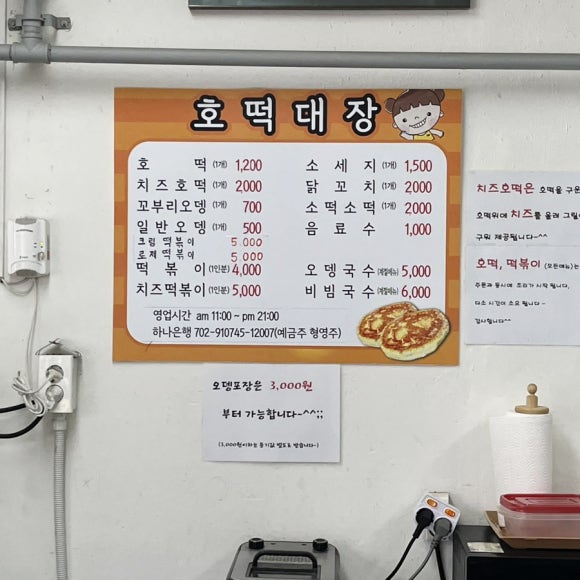 호떡대장
호 떡 (1개) 1,200
치즈호떡 (1개) 2000
꼬부리오뎅 (1개) 700
일반오뎅 (1개) 500
크림 떡볶이 5.000
로제 떡볶이 5.000
떡 볶 이 (1인분) 4,000
치즈떡볶이 (1인분) 5,000
소 세 지 (1개) 1,500
닭 꼬 치 (1개) 2000
소떡소떡 (1개) 2000
음 료 수 1,000
오뎅국수 (계절메뉴) 5,000
비빔국수 (계절메뉴) 6,000
영업시간 am 11:00 ~ pm 21:00
하나은행 702-910745-12007(예금주 형영주)
오뎅포장은 3,000원
부터 가능합니다~^^;;
(3,000원이하는 용기값 별도로 받습니다~)
치즈호떡은 호떡을 구운
호떡위에 치즈를 올려 그릴
구워 제공됩니다~^^
호떡, 떡볶이 (모든메뉴)는
주문과 동시에 조리가 시작 됩니다,
다소 시간이 소요 됩니다~
감사합니다^^